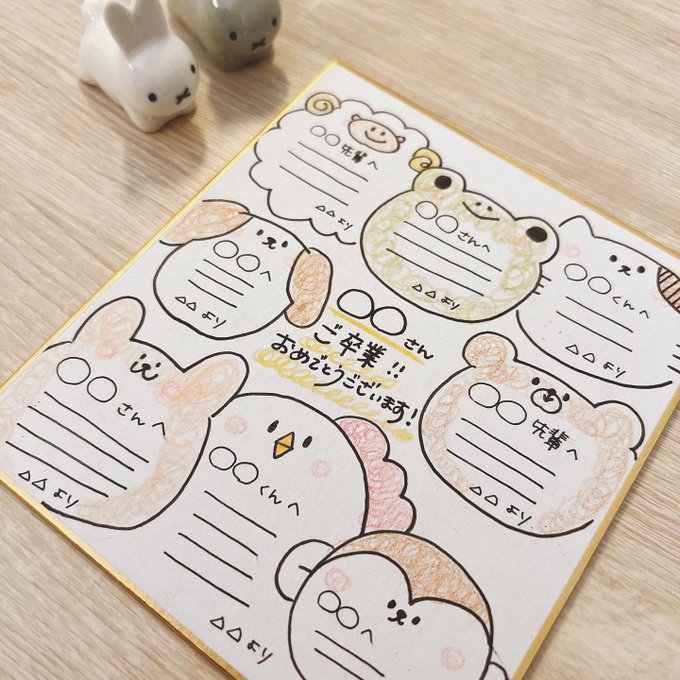 ○○先輩へ
△△より
○○さんへ
△△より
○○くんへ
△△より
○○へ
△△より
○○さん
ご卒業!!
おめでとうございます!
○○さんへ
△△より
○○先輩へ
△△より
○○くんへ
△△より
○○へ
△△より